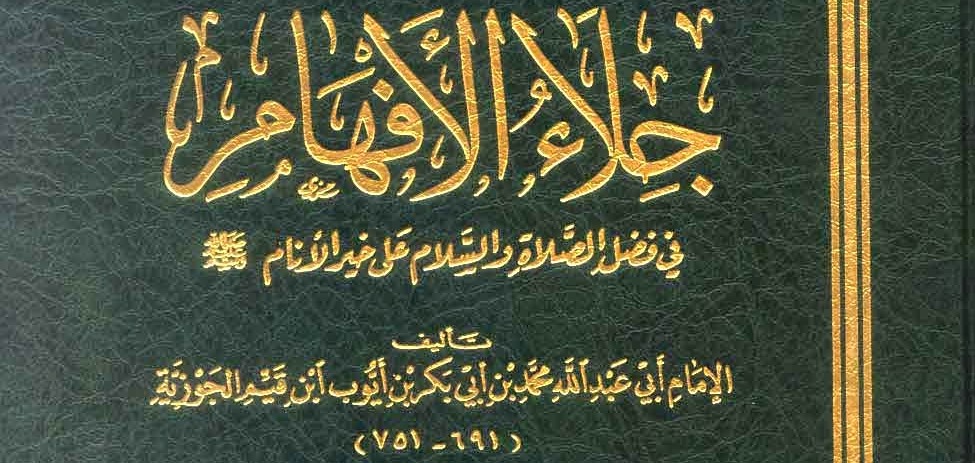 جِلَاءُ الْأَفْهَامِ
في فضل الصَّلاة والسَّلام على خير الأنام ﷺ
تأليف
الإمام أبي عبد الله محمد بن أبي بكر بن أيوب ابن قيم الجوزية
(٦٩١ - ٧٥١)